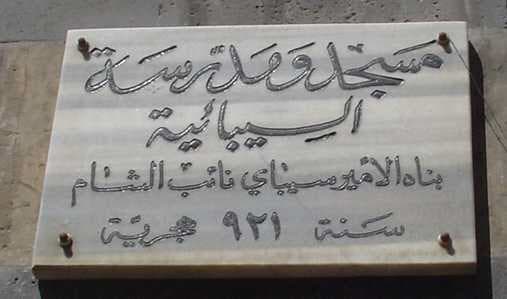 مسجد ومدرسة
السيبائية
بناه الامير سيباي نائب الشام
سنة ٩٢١ هجرية